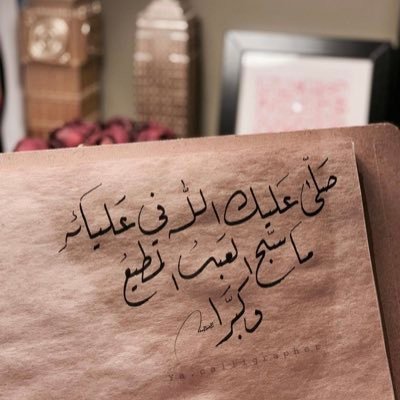 صَلّى عَليك اللّه في عَليائهِ
مَا سَبّح العَبدُ المطيعُ
وكَبَّرا
Ya.calligrapher